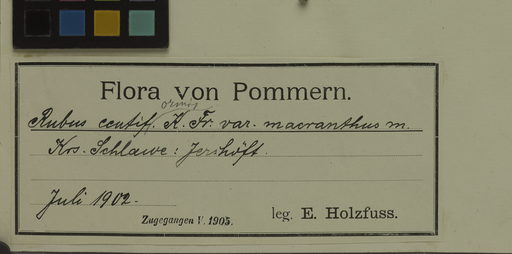 Flora von Pommern.
ormis
Rubus centif. K. Fr. var. macranthus m.
Krs. Schlawe: Jershöft.
Juli 1902.
Zugegangen V. 1905.
leg. E. Holzfuss.